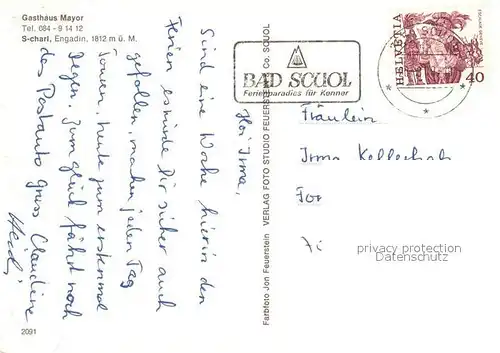 Gasthaus Mayor
Tel. 084 - 9 14 12
S-charl, Engadin, 1812 m ü. M.
Hoi Irma,
Sind eine Woche hier in den
Ferien es würde Dir sicher auch
gefallen, machen jeden Tag
Touren, heute zum erstenmal
Regen zum glück fährt noch
das Postauto Gruss Claudine
Heidi
2091
Farbfoto Jon Feuerstein VERLAG FOTO STUDIO FEUERSTEIN Co. SCUOL
BAD SCUOL
Ferienparadies für Kenner
HELVETIA
40
Fräulein
Irma
privacy protection
Datenschutz